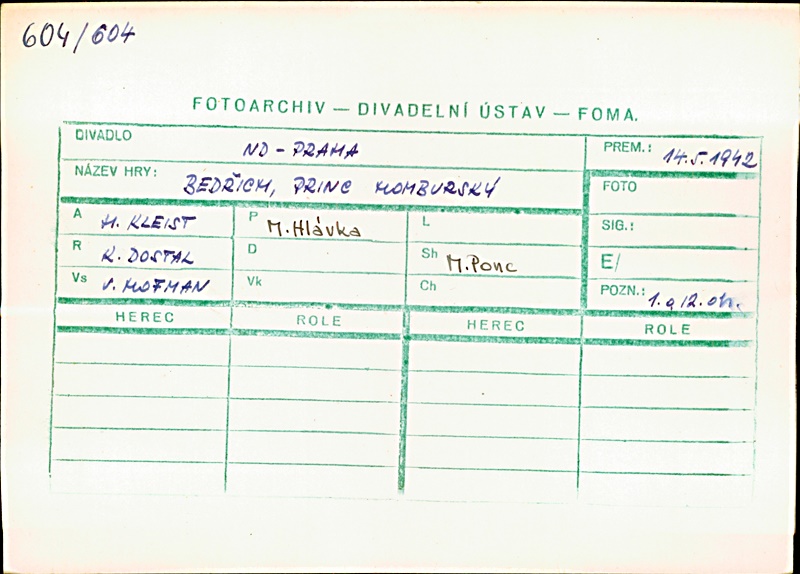 604/604
FOTOARCHIV — DIVADELNÍ ÚSTAV — FOMA.
DIVADLO ND - PRAHA
PREM.: 14.5.1942
NÁZEV HRY: BEDŘICH, PRINC HOMBURSKÝ
FOTO
A H. KLEIST P M. Hlávka L
SIG.:
R K. DOSTAL D Sh M. Ponc
E/
Vs V. HOFMAN Vk Ch
POZN.: 1. a 2. obr.
HEREC ROLE HEREC ROLE